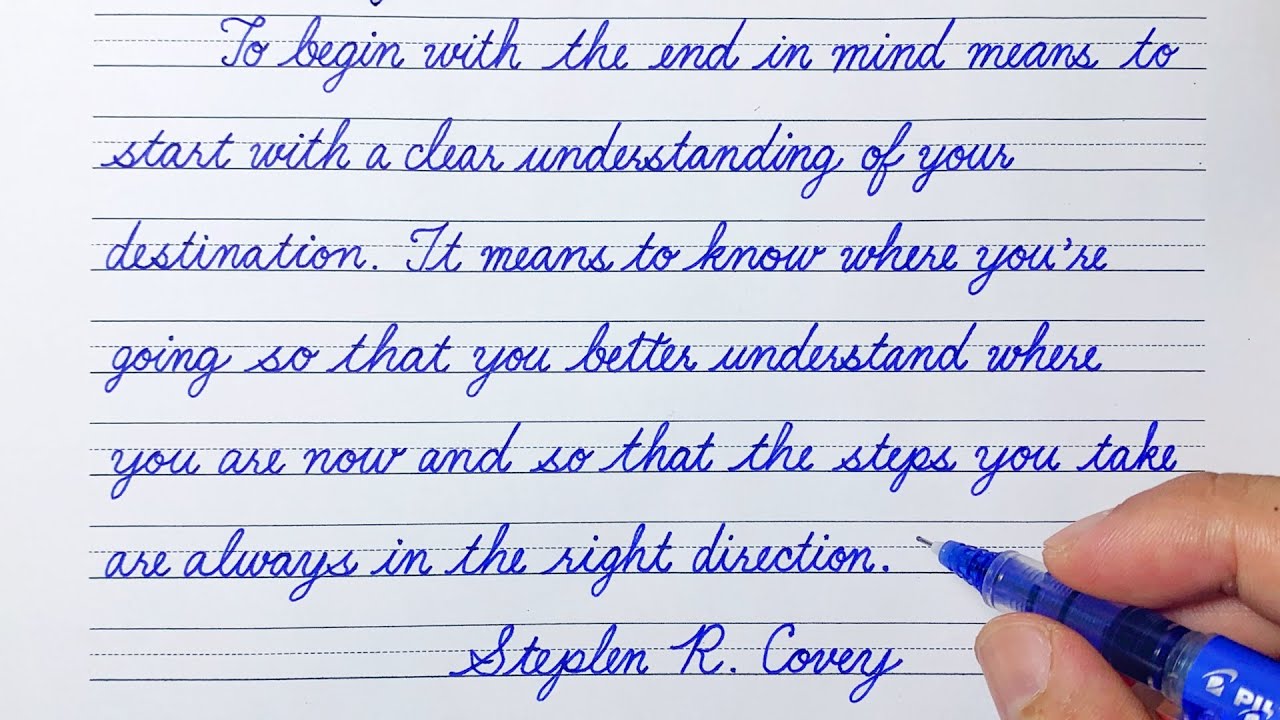 To begin with the end in mind means to
start with a clear understanding of your
destination. It means to know where you're
going so that you better understand where
you are now and so that the steps you take
are always in the right direction.
Steplen R. Covey